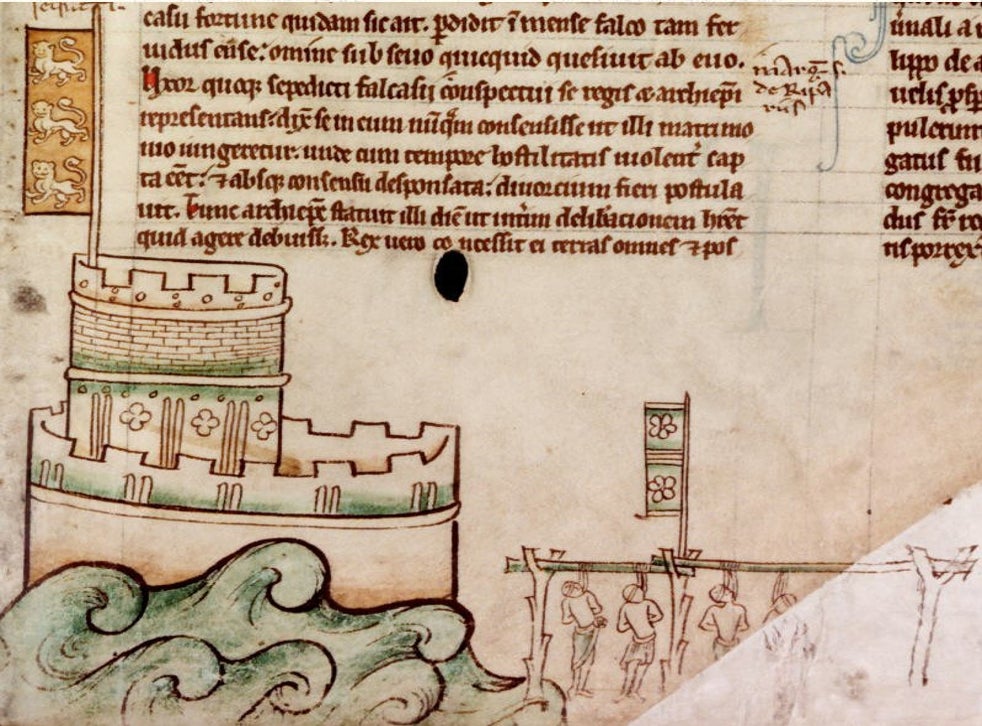 casu fortune quidam sic ait. p̄didit ī mense falco tam fer
uidus ense: omine sub seuo quicquid quesiuit ab euo.
Uxor quoqꝫ sepedicti falcasii cōspectui se regis ⁊ archiep̄i
representans: dix̄ se in eum nūq̄m consensisse ut illi matrimo
nio iungeretur. unde cum tempore hostilitatis uiolent̄ cap
ta eēt: ⁊ absqꝫ consensu desponsata: diuorcium fieri postula
uit. Tunc archiep̄c statuit illi diē ut int̄im deliberacionem hr̄et
quid agere debuiss;. Rex uero cōcessit ei terras omnes ⁊ pos
marḡ s.
de Ripa
riis
lippo de a
gatus fu
congrega